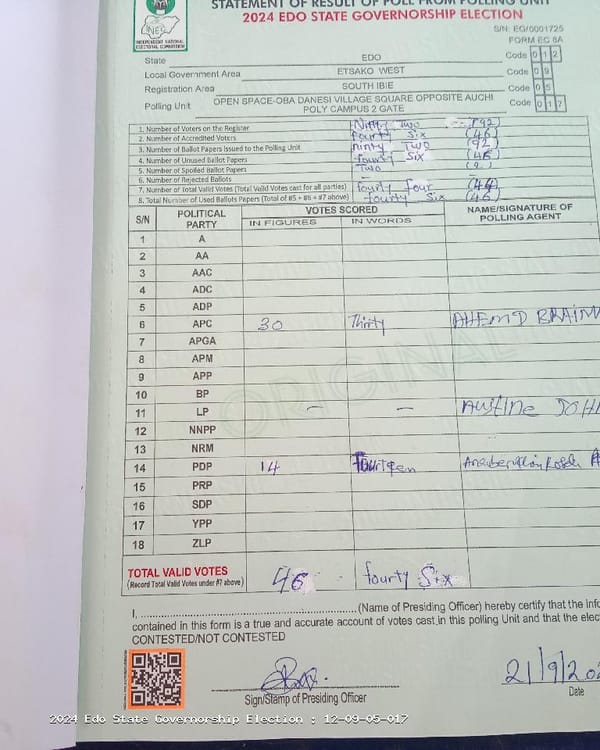 STATEMENT OF RESULT OF POLL FROM POLLING UNIT
2024 EDO STATE GOVERNORSHIP ELECTION
INEC
INDEPENDENT NATIONAL ELECTORAL COMMISSION
S/N: EG/0001725
FORM EC 8A
State EDO Code 0 1 2
Local Government Area ETSAKO WEST Code 0 9
Registration Area SOUTH IBIE Code 0 5
Polling Unit OPEN SPACE-OBA DANESI VILLAGE SQUARE OPPOSITE AUCHI POLY CAMPUS 2 GATE Code 0 1 7
1. Number of Voters on the Register Ninty Two (92)
2. Number of Accredited Voters fourty Six (46)
3. Number of Ballot Papers Issued to the Polling Unit ninty Two (92)
4. Number of Unused Ballot Papers fourty Six (46)
5. Number of Spoiled Ballot Papers Two (2)
6. Number of Rejected Ballots –
7. Number of Total Valid Votes (Total Valid Votes cast for all parties) fourty four (44)
8. Total Number of Used Ballots Papers (Total of #5 + #6 + #7 above) fourty Six (46)
S/N POLITICAL PARTY VOTES SCORED NAME/SIGNATURE OF POLLING AGENT
IN FIGURES IN WORDS
1 A
2 AA
3 AAC
4 ADC
5 ADP
6 APC 30 Thirty
7 APGA
8 APM
9 APP
10 BP
11 LP – – AUSTINE
12 NNPP
13 NRM
14 PDP 14 Fourteen
15 PRP
16 SDP
17 YPP
18 ZLP
ORIGINAL
TOTAL VALID VOTES 46 fourty Six
(Record Total Valid Votes under #7 above)
I, ..................(Name of Presiding Officer) hereby certify that the
contained in this form is a true and accurate account of votes cast in this polling Unit and that the
CONTESTED/NOT CONTESTED
21/9/
Sign/Stamp of Presiding Officer Date
2024 Edo State Governorship Election : 12-09-05-017